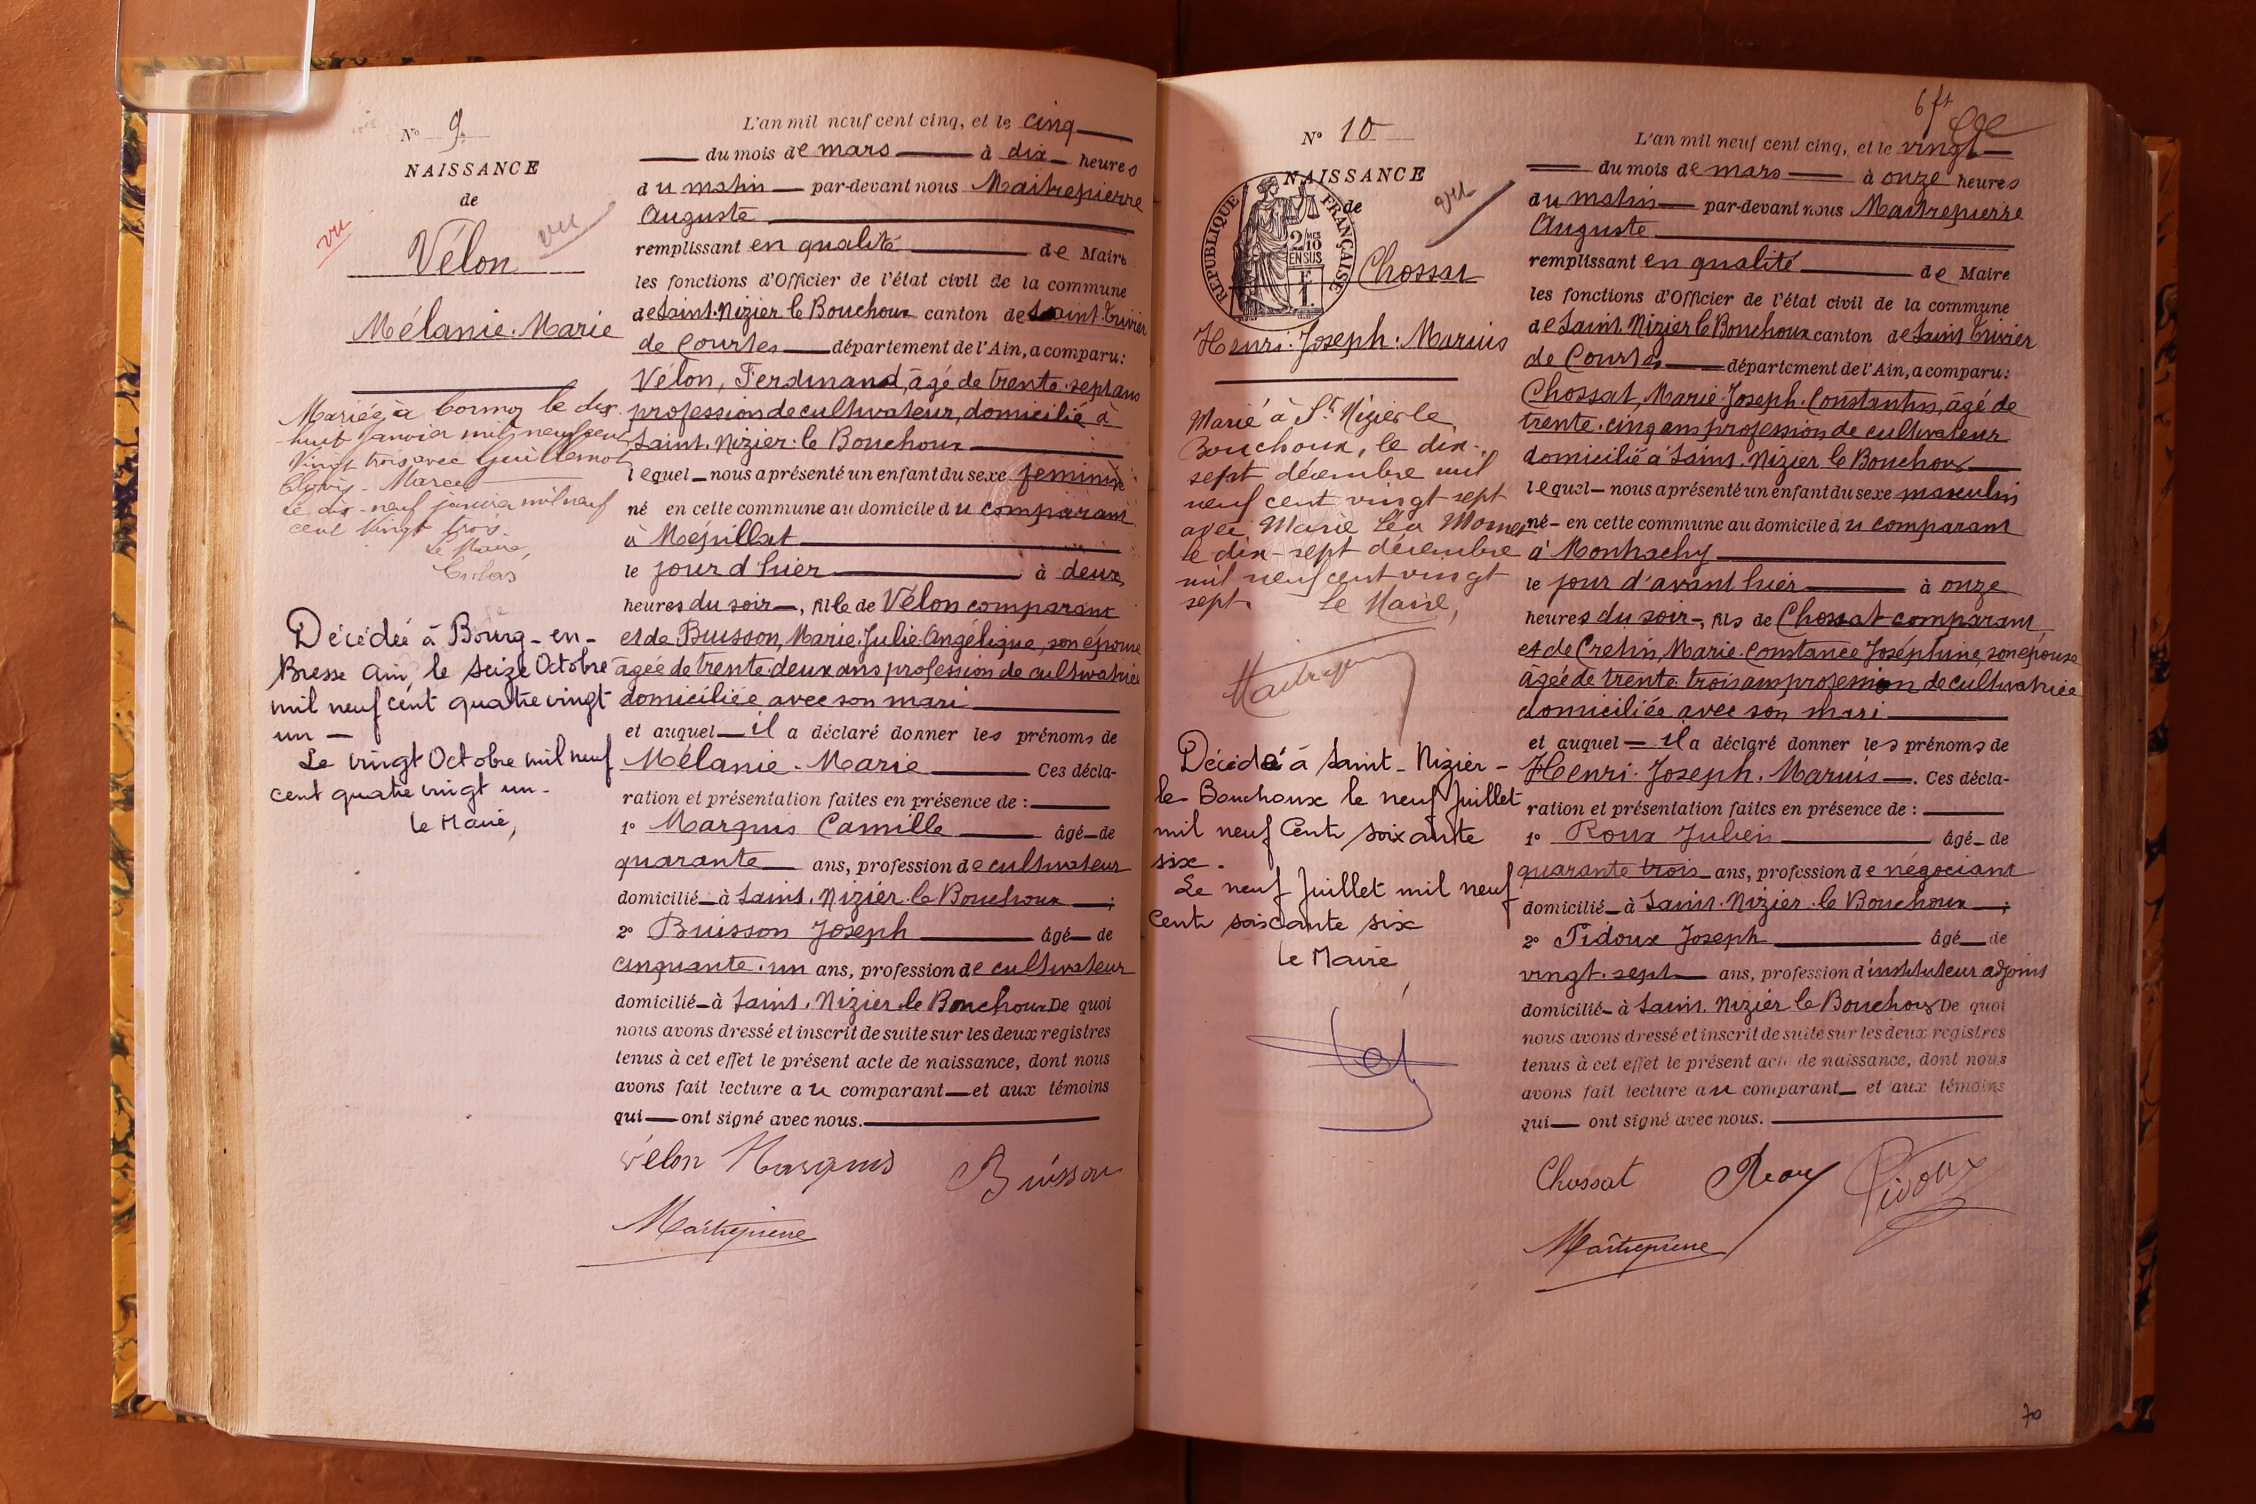 N° 9
NAISSANCE
de
vu
vu
Vélon
Mélanie. Marie
Mariée à Cormoz le dix
huit janvier mil neuf cent
vingt trois avec Guillemot
Clovis - Marcel
Le dix-neuf janvier mil neuf
cent vingt trois.
Le Maire,
Décédée à Bourg-en-
Bresse Ain, le seize Octobre
mil neuf cent quatre vingt
un —
Le vingt Octobre mil neuf
cent quatre vingt un -
le Maire,
L'an mil neuf cent cinq, et le cinq
du mois de mars à dix heures
du matin par-devant nous Maitrepierre
Auguste
remplissant en qualité de Maire
les fonctions d'Officier de l'état civil de la commune
de Saint. Nizier le Bouchoux canton de Saint. Trivier
de Courtes département de l'Ain, a comparu:
Vélon, Ferdinand, âgé de trente. sept ans
profession de cultivateur, domicilié à
Saint. Nizier. le Bouchoux
lequel nous a présenté un enfant du sexe féminin
né en cette commune au domicile du comparant
à Mépillat
le jour d'hier à deux
heures du soir, fille de Vélon comparant
et de Buisson, Marie. Julie. Angélique, son épouse
âgée de trente. deux ans profession de cultivatrice
domiciliée avec son mari
et auquel il a déclaré donner les prénoms de
Mélanie. Marie Ces décla-
ration et présentation faites en présence de :
1° Marquis Camille âgé de
quarante ans, profession de cultivateur
domicilié à Saint. Nizier. le Bouchoux ;
2° Buisson Joseph âgé de
cinquante. un ans, profession de cultivateur
domicilié à Saint. Nizier le Bouchoux De quoi
nous avons dressé et inscrit de suite sur les deux registres
tenus à cet effet le présent acte de naissance, dont nous
avons fait lecture au comparant et aux témoins
qui ont signé avec nous.
Vélon Marquis Buisson
Maitrepierre
N° 10
NAISSANCE
de
vu
REPUBLIQUE FRANÇAISE
2/10 MES
EN SUS
1 F
Chossat
Henri. Joseph. Marius
Marié à St Nizier le
Bouchoux, le dix-
sept décembre mil
neuf cent vingt sept
avec Marie Léa Mornet
le dix-sept décembre
mil neuf cent vingt
sept. Le Maire,
Maitrepierre
Décédé à Saint-Nizier-
le Bouchoux le neuf Juillet
mil neuf Cent soixante
six.
Le neuf Juillet mil neuf
Cent soixante six
le Maire
6 ft
L'an mil neuf cent cinq, et le vingt
du mois de mars à onze heures
du matin par-devant nous Maitrepierre
Auguste
remplissant en qualité de Maire
les fonctions d'Officier de l'état civil de la commune
de Saint. Nizier le Bouchoux canton de Saint Trivier
de Courtes département de l'Ain, a comparu:
Chossat, Marie. Joseph. Constantin, âgé de
trente. cinq ans profession de cultivateur
domicilié à Saint. Nizier le Bouchoux
lequel nous a présenté un enfant du sexe masculin
né en cette commune au domicile du comparant
à Montrachy
le jour d'avant hier à onze
heures du soir, fils de Chossat comparant
et de Cretin, Marie. Constance Joséphine, son épouse
âgée de trente. trois ans profession de cultivatrice
domiciliée avec son mari
et auquel il a déclaré donner les prénoms de
Henri. Joseph. Marius. Ces décla-
ration et présentation faites en présence de :
1° Roux Julien âgé de
quarante trois ans, profession de négociant
domicilié à Saint. Nizier. le Bouchoux ;
2° Pidoux Joseph âgé de
vingt. sept ans, profession d'instituteur adjoint
domicilié à Saint. Nizier le Bouchoux De quoi
nous avons dressé et inscrit de suite sur les deux registres
tenus à cet effet le présent acte de naissance, dont nous
avons fait lecture au comparant et aux témoins
qui ont signé avec nous.
Chossat Roux Pidoux
Maitrepierre
70